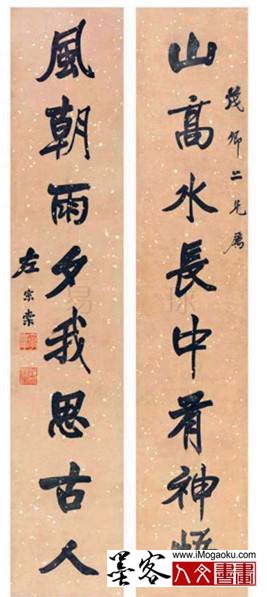 卿二兄屬
山高水長中有神悟
風朝雨夕我思古人
左宗棠
墨客
www.iMogaoku.com
人文書畫